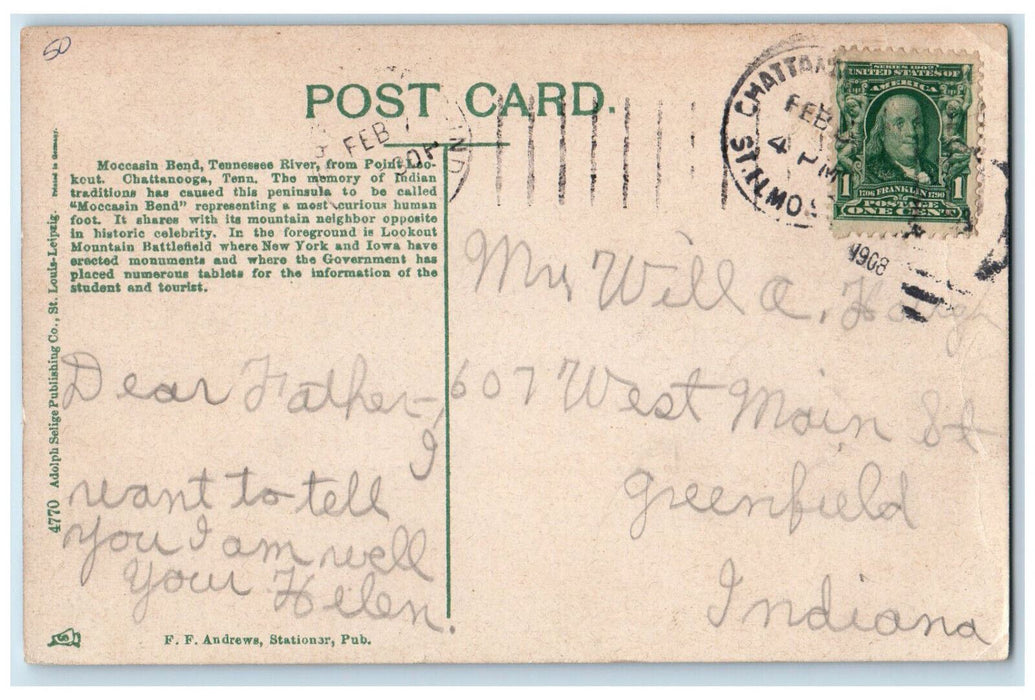 50
POST CARD.
FEB
IND
CHATTAN
FEB
4 PM
ST. ELMO S
1908
SERIES 1902
UNITED STATES OF
AMERICA
1706 FRANKLIN 1790
POSTAGE
1 ONE CENT 1
Moccasin Bend, Tennessee River, from Point Loo-
kout. Chattanooga, Tenn. The memory of Indian
traditions has caused this peninsula to be called
"Moccasin Bend" representing a most curious human
foot. It shares with its mountain neighbor opposite
in historic celebrity. In the foreground is Lookout
Mountain Battlefield where New York and Iowa have
erected monuments and where the Government has
placed numerous tablets for the information of the
student and tourist.
4770 Adolph Selige Publishing Co., St. Louis-Leipzig. Printed in Germany.
Dear Father,
I
want to tell
you I am well
Your Helen.
Mr Will A.
607 West Main St
Greenfield
Indiana
F. F. Andrews, Stationer, Pub.